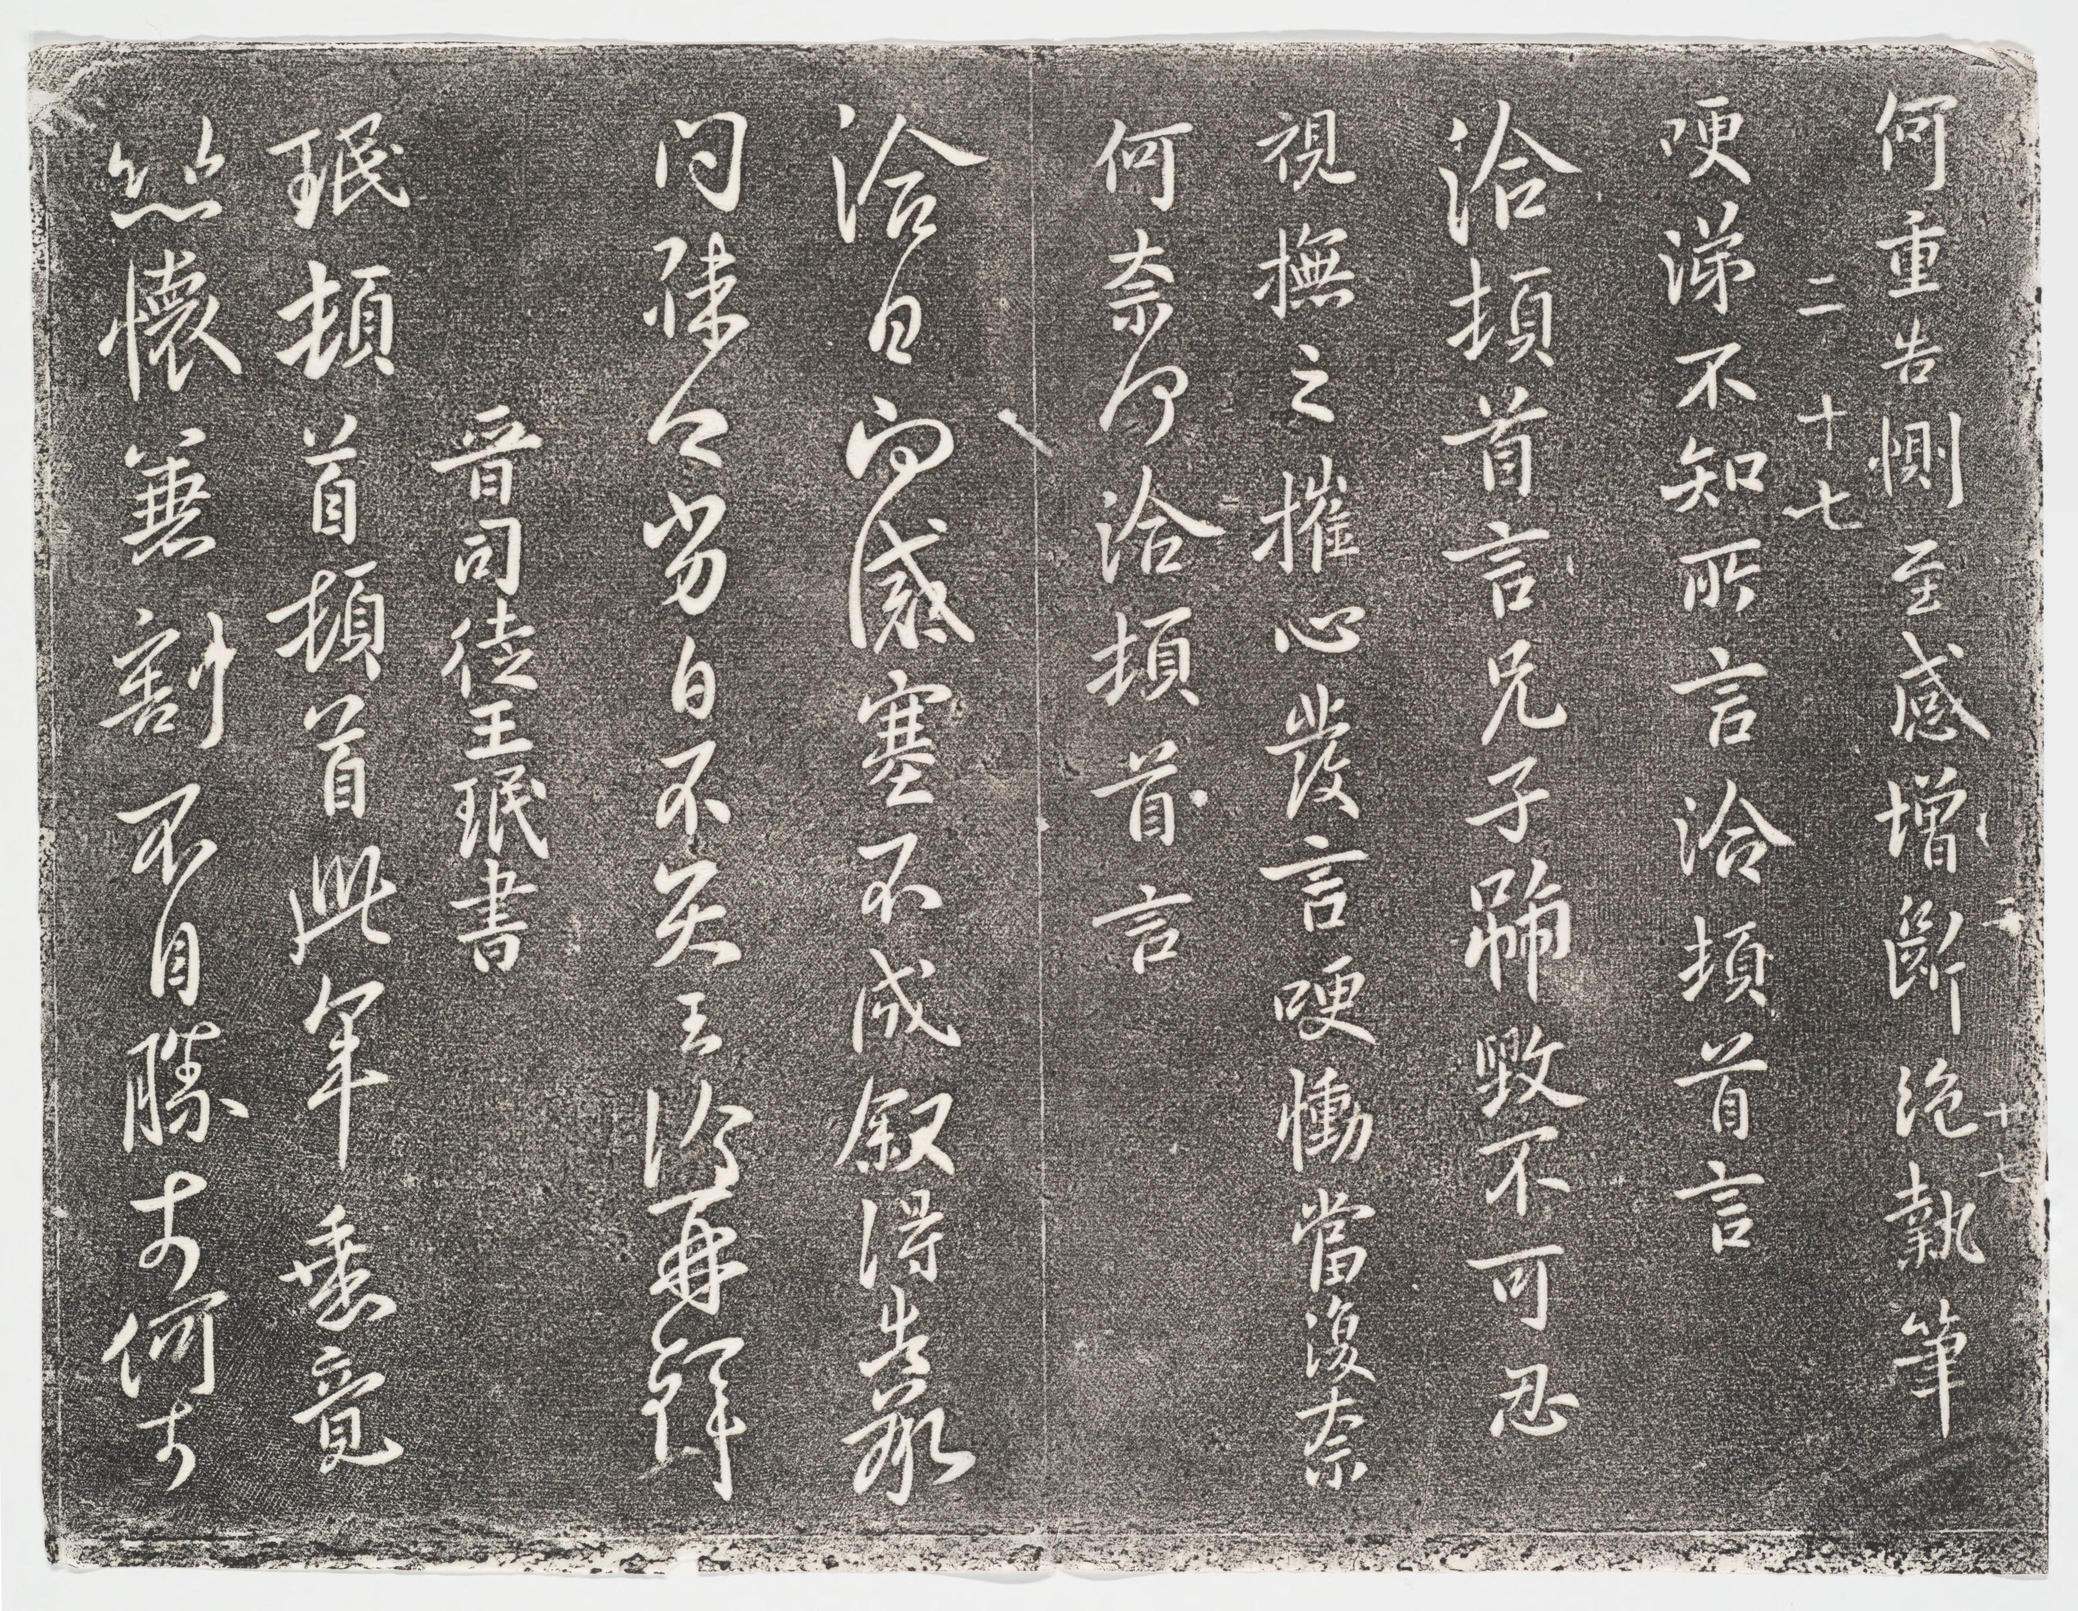 何重告惻至感增斷絕執筆
二十七
哽涕不知所言洽頓首言
洽頓首言兄子號毀不可忍
視撫之摧心發言哽慟當復奈
何奈何洽頓首言
洽白感塞不成叙得告
問勞白不具王洽再拜
晉司徒王珉書
珉頓首頓首此年垂竟
懷兼割不自勝奈何奈